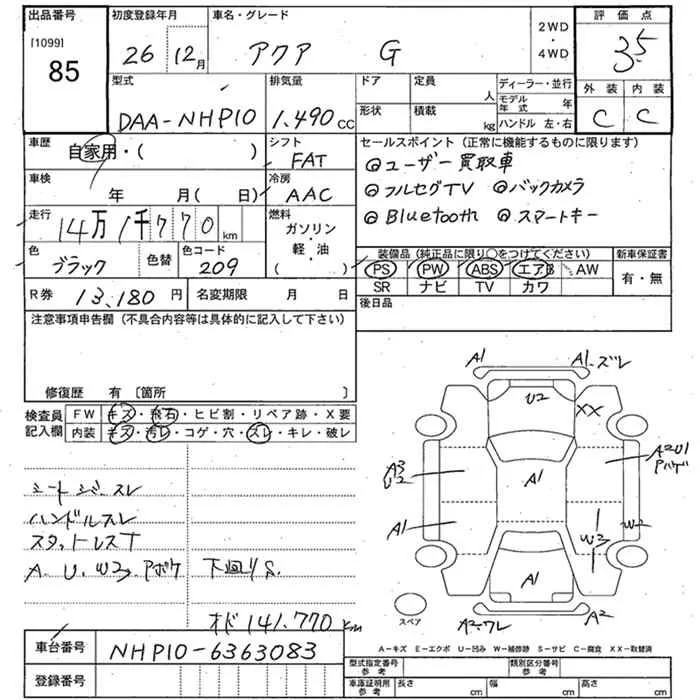 出品番号 初度登録年月 車名・グレード 2WD・4WD 評価点
[1099] 85 26 12月 アクア G 3.5
型式 排気量 ドア 定員 人 ディーラー・並行 外装 内装
DAA-NHP10 1.490cc 形状 積載 kg モデル年式 年 ハンドル 左・右 C C
車歴 自家用・( ) シフト FAT セールスポイント (正常に機能するものに限ります)
◎ユーザー買取車
車検 年 月(日) 冷房 AAC ◎フルセグTV ◎バックカメラ
走行 14万1千770km 燃料 ガソリン・軽・油 ( ) ◎Bluetooth ◎スマートキー
色 ブラック 色替 色コード 209 装備品 (純正品に限り○をつけてください) 新車保証書
PS PW ABS エアB AW 有・無
SR ナビ TV カワ
R券 13,180円 名変期限 月 日 後日品
注意事項申告欄 (不具合内容等は具体的に記入して下さい)
修復歴 有 〔箇所 〕
検査員記入欄 FW キズ・飛石・ヒビ割・リペア跡・X要
内装 キズ・汚レ・コゲ・穴・スレ・キレ・破レ
ハンドルスレ
スタットレスT
A.U.W3. Aボケ 下廻りS.
オド141.770km
車台番号 NHP10-6363083
登録番号
A1 A1.ズレ
U2 XX
A3 U2 A1 A2U1
A1 W3 W2
A1
A2.ワレ A2
スペア
A-キズ E-エクボ U-凹み W-補修跡 S-サビ C-腐食 XX-取替済
型式指定番号 参考 類別区分番号 参考
車庫証明用 参考 長さ cm 幅 cm 高さ cm